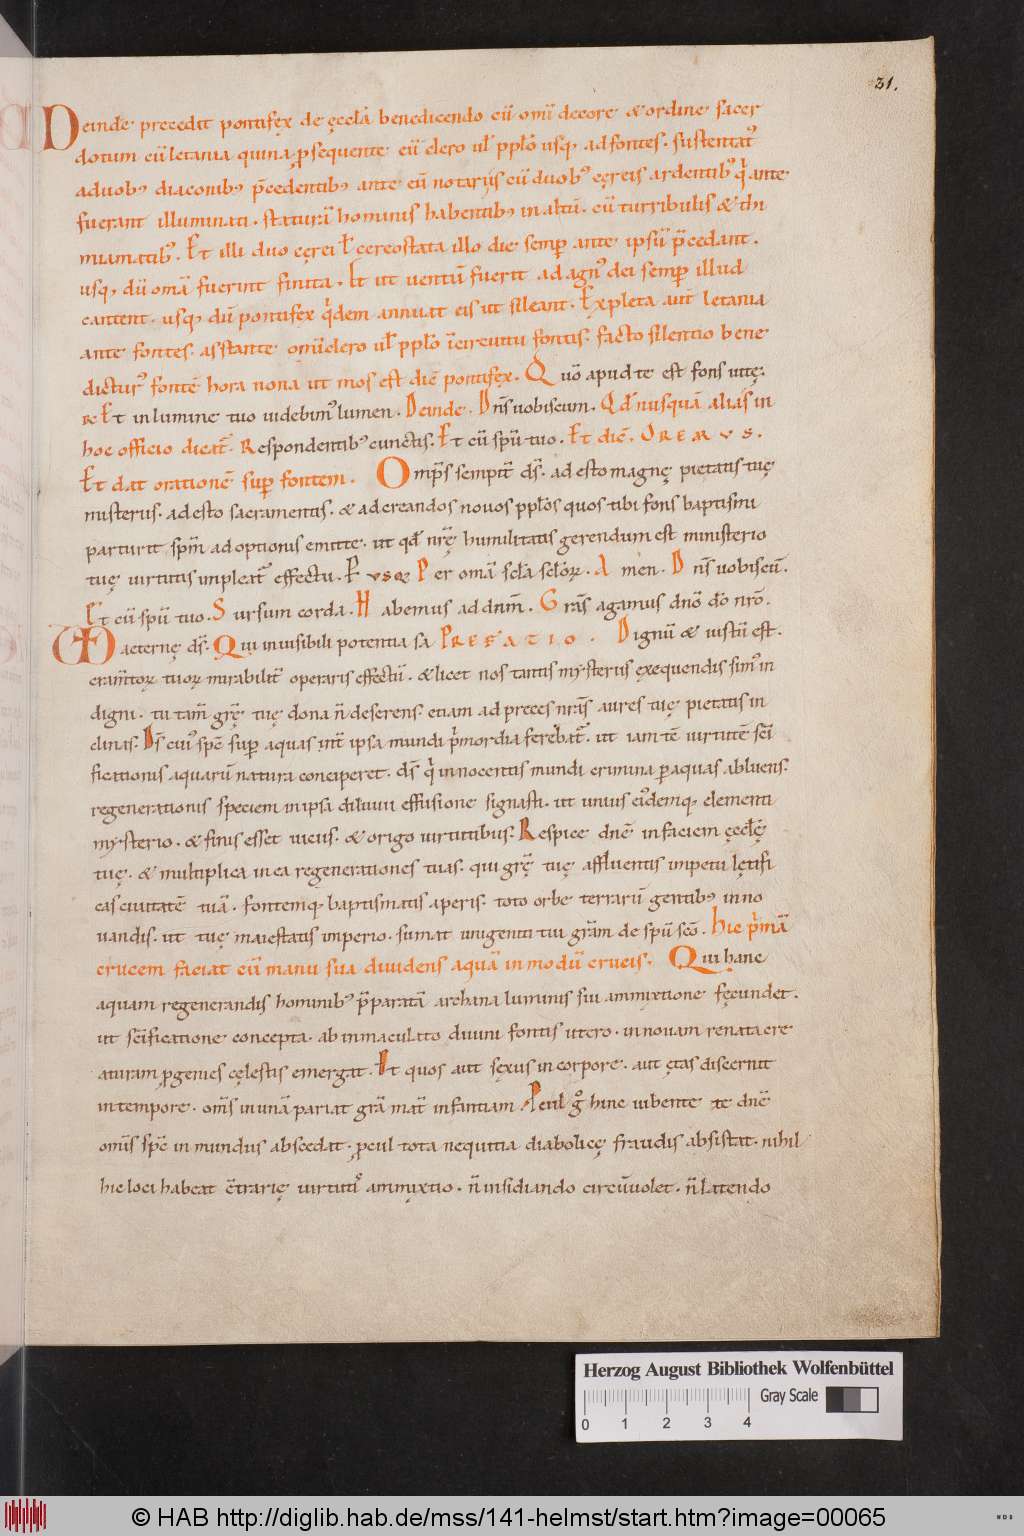 31.
Deinde precedit pontifex de ęcclā benedicendo cū om̄i decore & ordine sacer
dotum cū letania quina ꝑsequente cū clero ul̄ ppl̄o usq; ad fontes. sustentat᷒
a duob; diaconib; p̄cedentib; ante eū notariis cū duob᷒ cęreis ardentib᷒ q̇ ante
fuerant illuminati. staturā hominis habentib; in altū. cū turribulis & thi
miamatib᷒. Et illi duo cęrei ł cereostata illo die semꝑ ante ipsū p̄cedant.
usq; dū om̄ā fuerint finita. Et ut uentū fuerit ad agn᷒ dei semꝑ illud
cantent. usq; dū pontifex q̇dem annuat eis ut sileant. Expleta aūt letania
ante fontes. asstante om̄i clero ul̄ ppl̄o ī circuitu fontis. facto silentio bene
dictur᷒ fontē hora nona ut mos est dic̄ pontifex. Quō apud te est fons uitę.
R Et in lumine tuo uidebim᷒ lumen. Deinde. Dn̄s uobiscum. Qd̄ nusquā alias in
hoc officio dicat̄. Respondentib᷒ cunctis. Et cū spū tuo. Et dic̄. OREMVS.
Et dat orationē suꝑ fontem. Omp̄s sempit̄ d̄s. adesto magnę pietatis tuę
misteriis. adesto sacramentis. & ad creandos nouos ppl̄os quos tibi fons baptismi
parturit spm̄ adoptionis emitte. ut qd̄ nr̄ę humilitatis gerendum est ministerio
tuę uirtutis impleat̄ effectu. P VSQ; Per om̄ā sc̄la sc̄loꝝ. A men. Dn̄s uobiscū.
Et cū spū tuo. Sursum corda. Habemus ad dn̄m. Grās agamus dn̄o dō nr̄o.
aeternę d̄s. Qui inuisibili potentia sa PREFATIO. Dignū & iustū est.
cram̄toꝝ tuoꝝ mirabilit̄ operaris effectū. & licet nos tantis mysteriis exequendis sim᷒ in
digni. tu tam̄ grę̄ tuę dona n̄ deserens. etiam ad preces nr̄as aures tuę pietatis in
clinas. D̄s cui᷒ sp̄c suꝑ aquas int̄ ipsa mundi p̄mordia ferebat̄. ut iam tc̄ uirtutē sc̄i
ficationis aquarū natura conciperet. d̄s q̇ innocentis mundi crimina ꝑ aquas abluens.
regenerationis speciem in ipsa diluuii effusione signasti. ut unius ei᷒demq; elementi
mysterio. & finis esset uiciis. & origo uirtutibus. Respice dn̄e in faciem ęccl̄ę
tuę. & multiplica in ea regenerationes tuas. qui grę̄ tuę affluentis impetu lętifi
cas ciuitatē tuā. fontemq; baptismatis aperis. toto orbe terrarū gentib; inno
uandis. ut tuę maiestatis imperio. sumat unigeniti tui grām de spū scō. Hic p̄mā
crucem faciat cū manu sua diuidens aquā in modū crucis. Qui hanc
aquam regenerandis hominib᷒ p̄paratā archana luminis sui ammixtione fęcundet.
ut sc̄ificatione concepta. ab inmaculato diuini fontis utero. in nouam renata cre
aturam ꝓgenies cęlestis emergat. Et quos aut sexus in corpore. aut ętas discernit
in tempore. om̄s in unā pariat grā mat̄ infantiam. Pcul g᷒ hinc iubente te dn̄e
om̄is sp̄c inmundus abscedat. ꝓcul tota nequitia diabolicę fraudis absistat. nihil
hic loci habeat c̄trarię uirtuti᷒ ammixtio. n̄ insidiando circūuolet. n̄ latendo
Herzog August Bibliothek Wolfenbüttel
0 1 2 3 4 Gray Scale
© HAB http://diglib.hab.de/mss/141-helmst/start.htm?image=00065